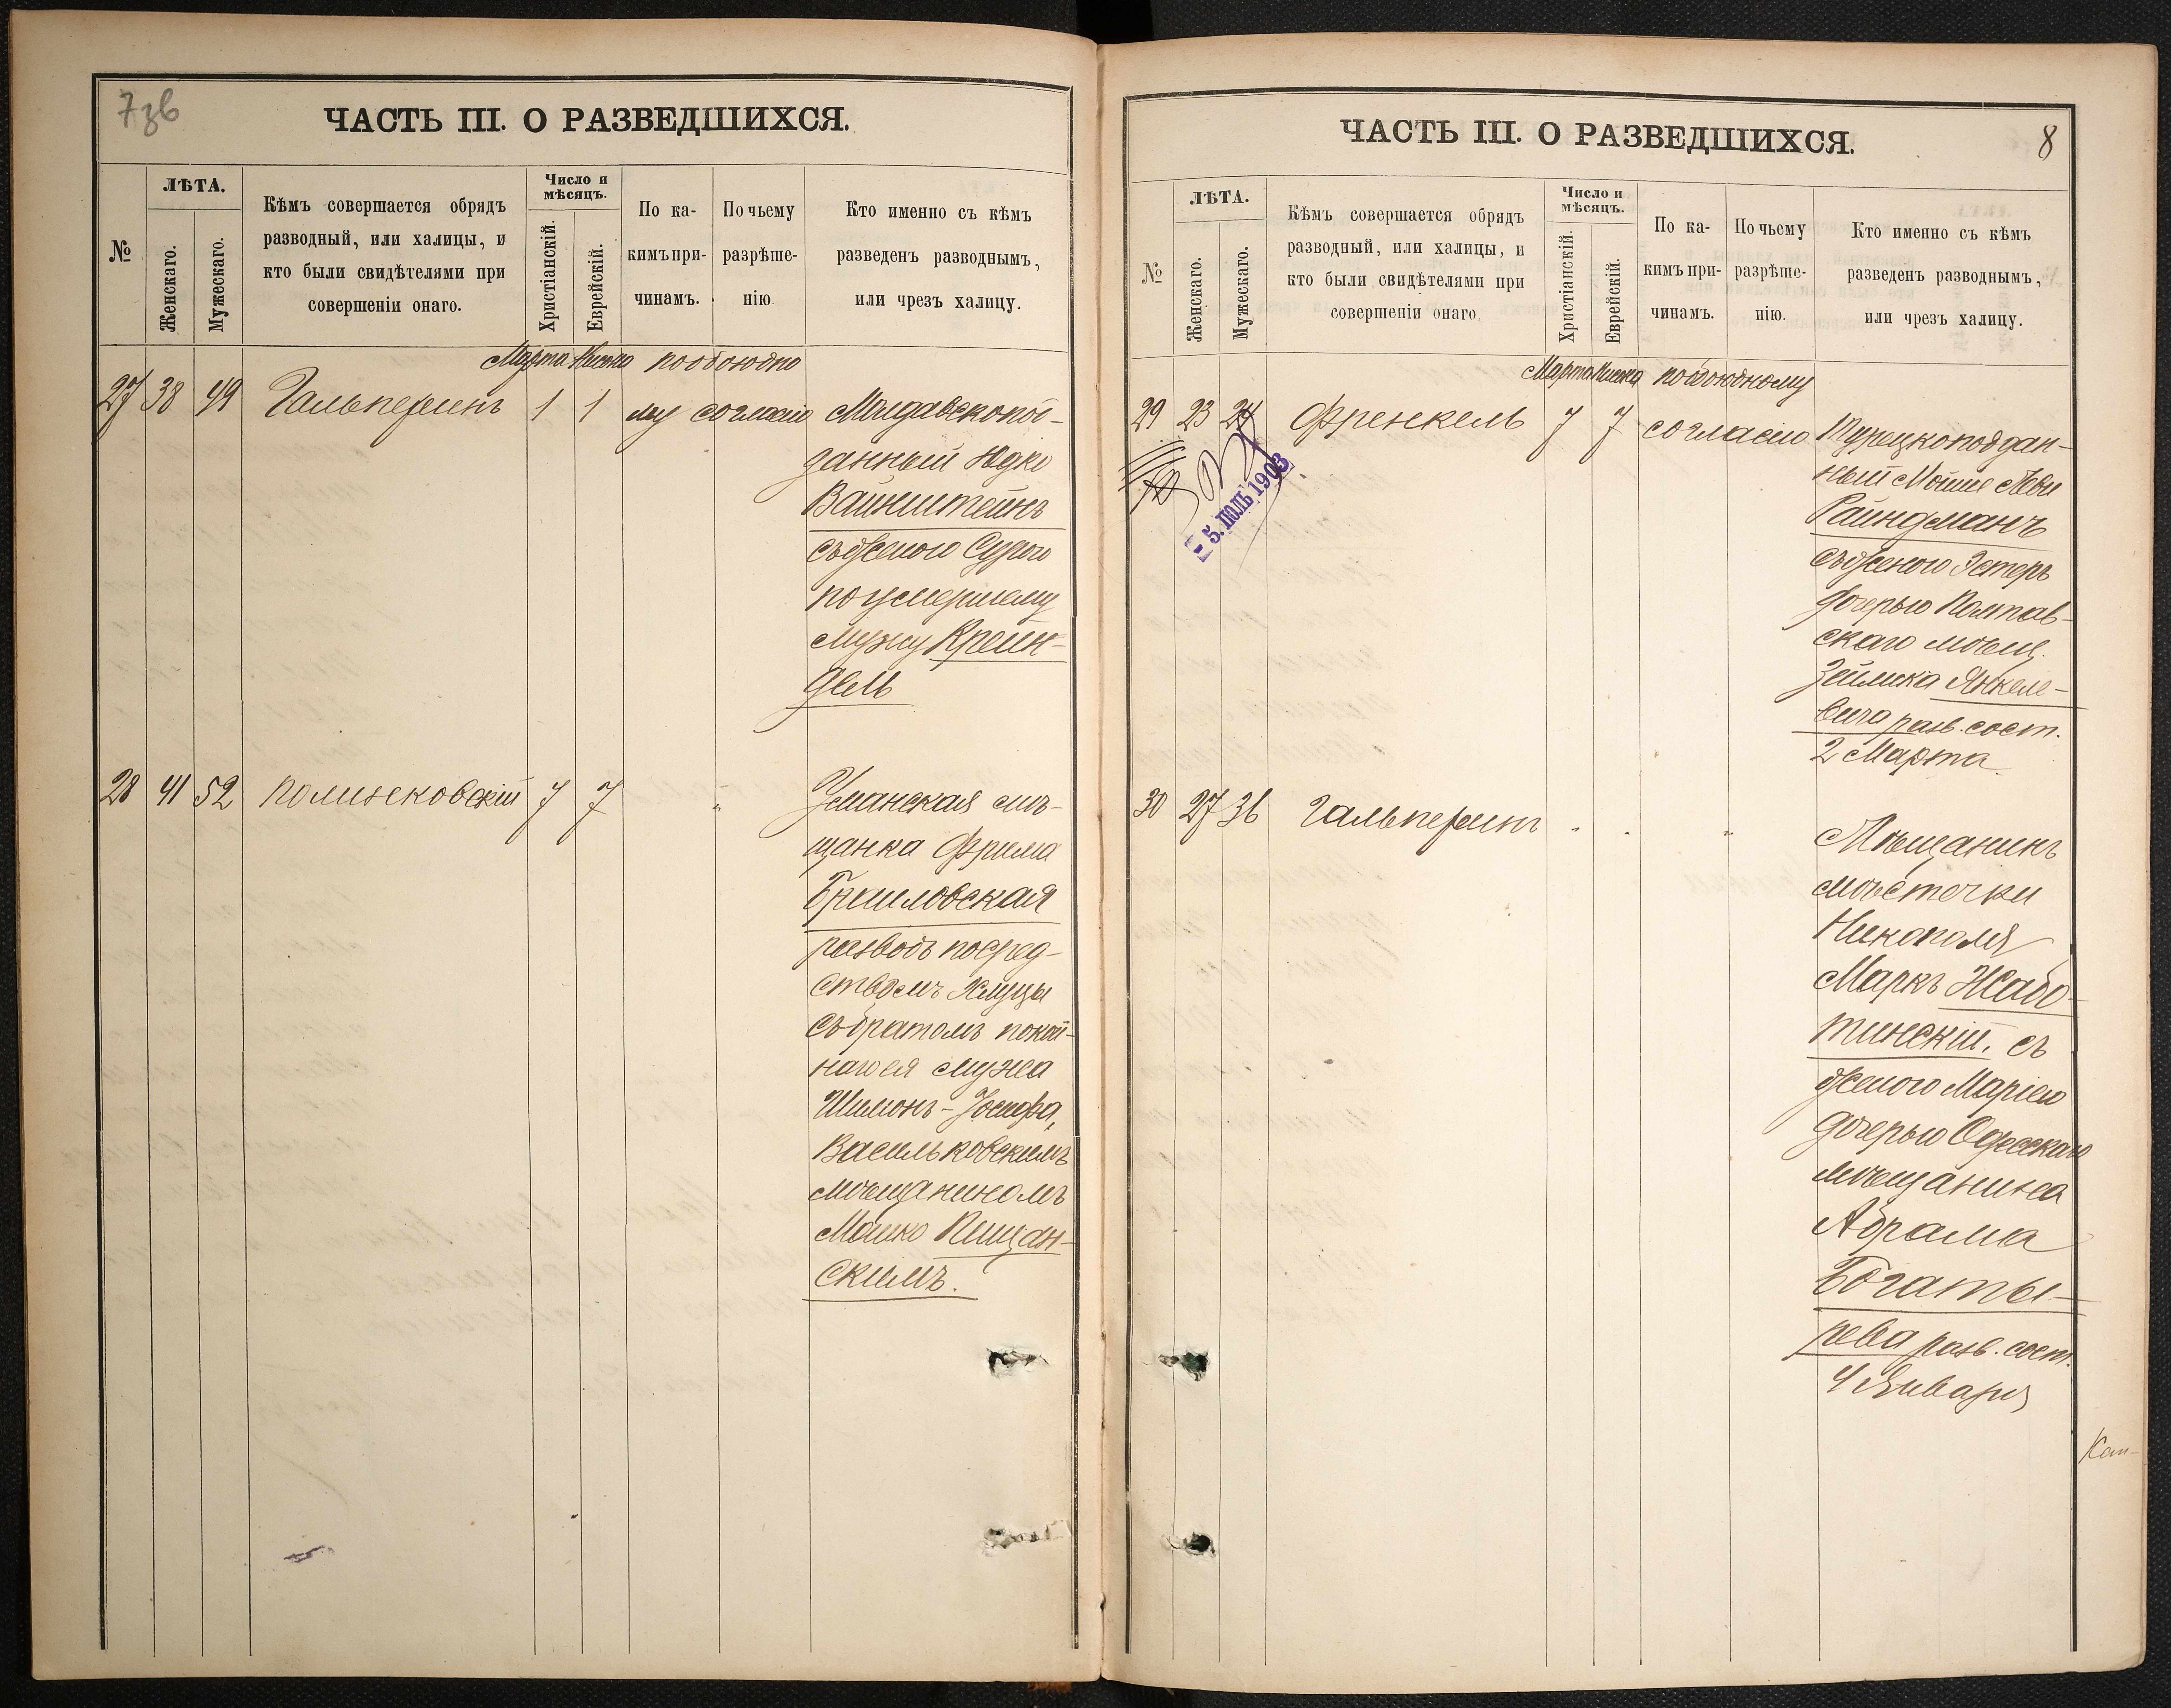 7 зв
ЧАСТЬ III. О РАЗВЕДШИХСЯ.
№
ЛѢТА.
Женскаго.
Мужескаго.
Кѣмъ совершается обрядъ
разводный, или халицы, и
кто были свидѣтелями при
совершеніи онаго.
Число и
мѣсяцъ.
Христіанскій.
Еврейскій.
По ка-
кимъ при-
чинамъ.
По чьему
разрѣше-
нію.
Кто именно съ кѣмъ
разведенъ разводнымъ,
или чрезъ халицу.
Марта Нисона пообоюдно
27 38 49 Гальперинъ 1 1 му согласію Молдавскопод-
данный Юдко
Вайнштейнъ
съ женою Сурою
по умершему
мужу Крейн-
дель
28 41 52 Полинсковскій 7 7 " Уманская мѣ-
щанка Фрима
Браиловская
разводъ посред-
ствомъ Хлуцы
съ братомъ покой-
наго ея мужа
Шимонъ-Іосифа,
Васильковскимъ
мѣщаниномъ
Мошко Пищан-
скимъ.
ЧАСТЬ III. О РАЗВЕДШИХСЯ.
8
№
ЛѢТА.
Женскаго.
Мужескаго.
Кѣмъ совершается обрядъ
разводный, или халицы, и
кто были свидѣтелями при
совершеніи онаго
Число и
мѣсяцъ.
Христіанскій.
Еврейскій.
По ка-
кимъ при-
чинамъ.
По чьему
разрѣше-
нію.
Кто именно съ кѣмъ
разведенъ разводнымъ,
или чрезъ халицу.
Марта Нисона пообоюдному
29 23 24 Френкель 7 7 согласію Турецкоподдан-
ный Мойше Леви
Райндманъ
съ женою Эстеръ
дочерью Полтав-
скаго мѣщ.
Зейлика Янкеле-
вича разв. сост.
2 Марта
- 5. ІЮЛЬ 1903
30 27 36 Гальперинъ " " " Мѣщанинъ
мѣстечки
Никополя
Маркъ Жабо-
тинскій. съ
женою Маріею
дочерью Одесскаго
мѣщанина
Абрама
Богаты-
рева разв. сост.
4 Января
Кан-